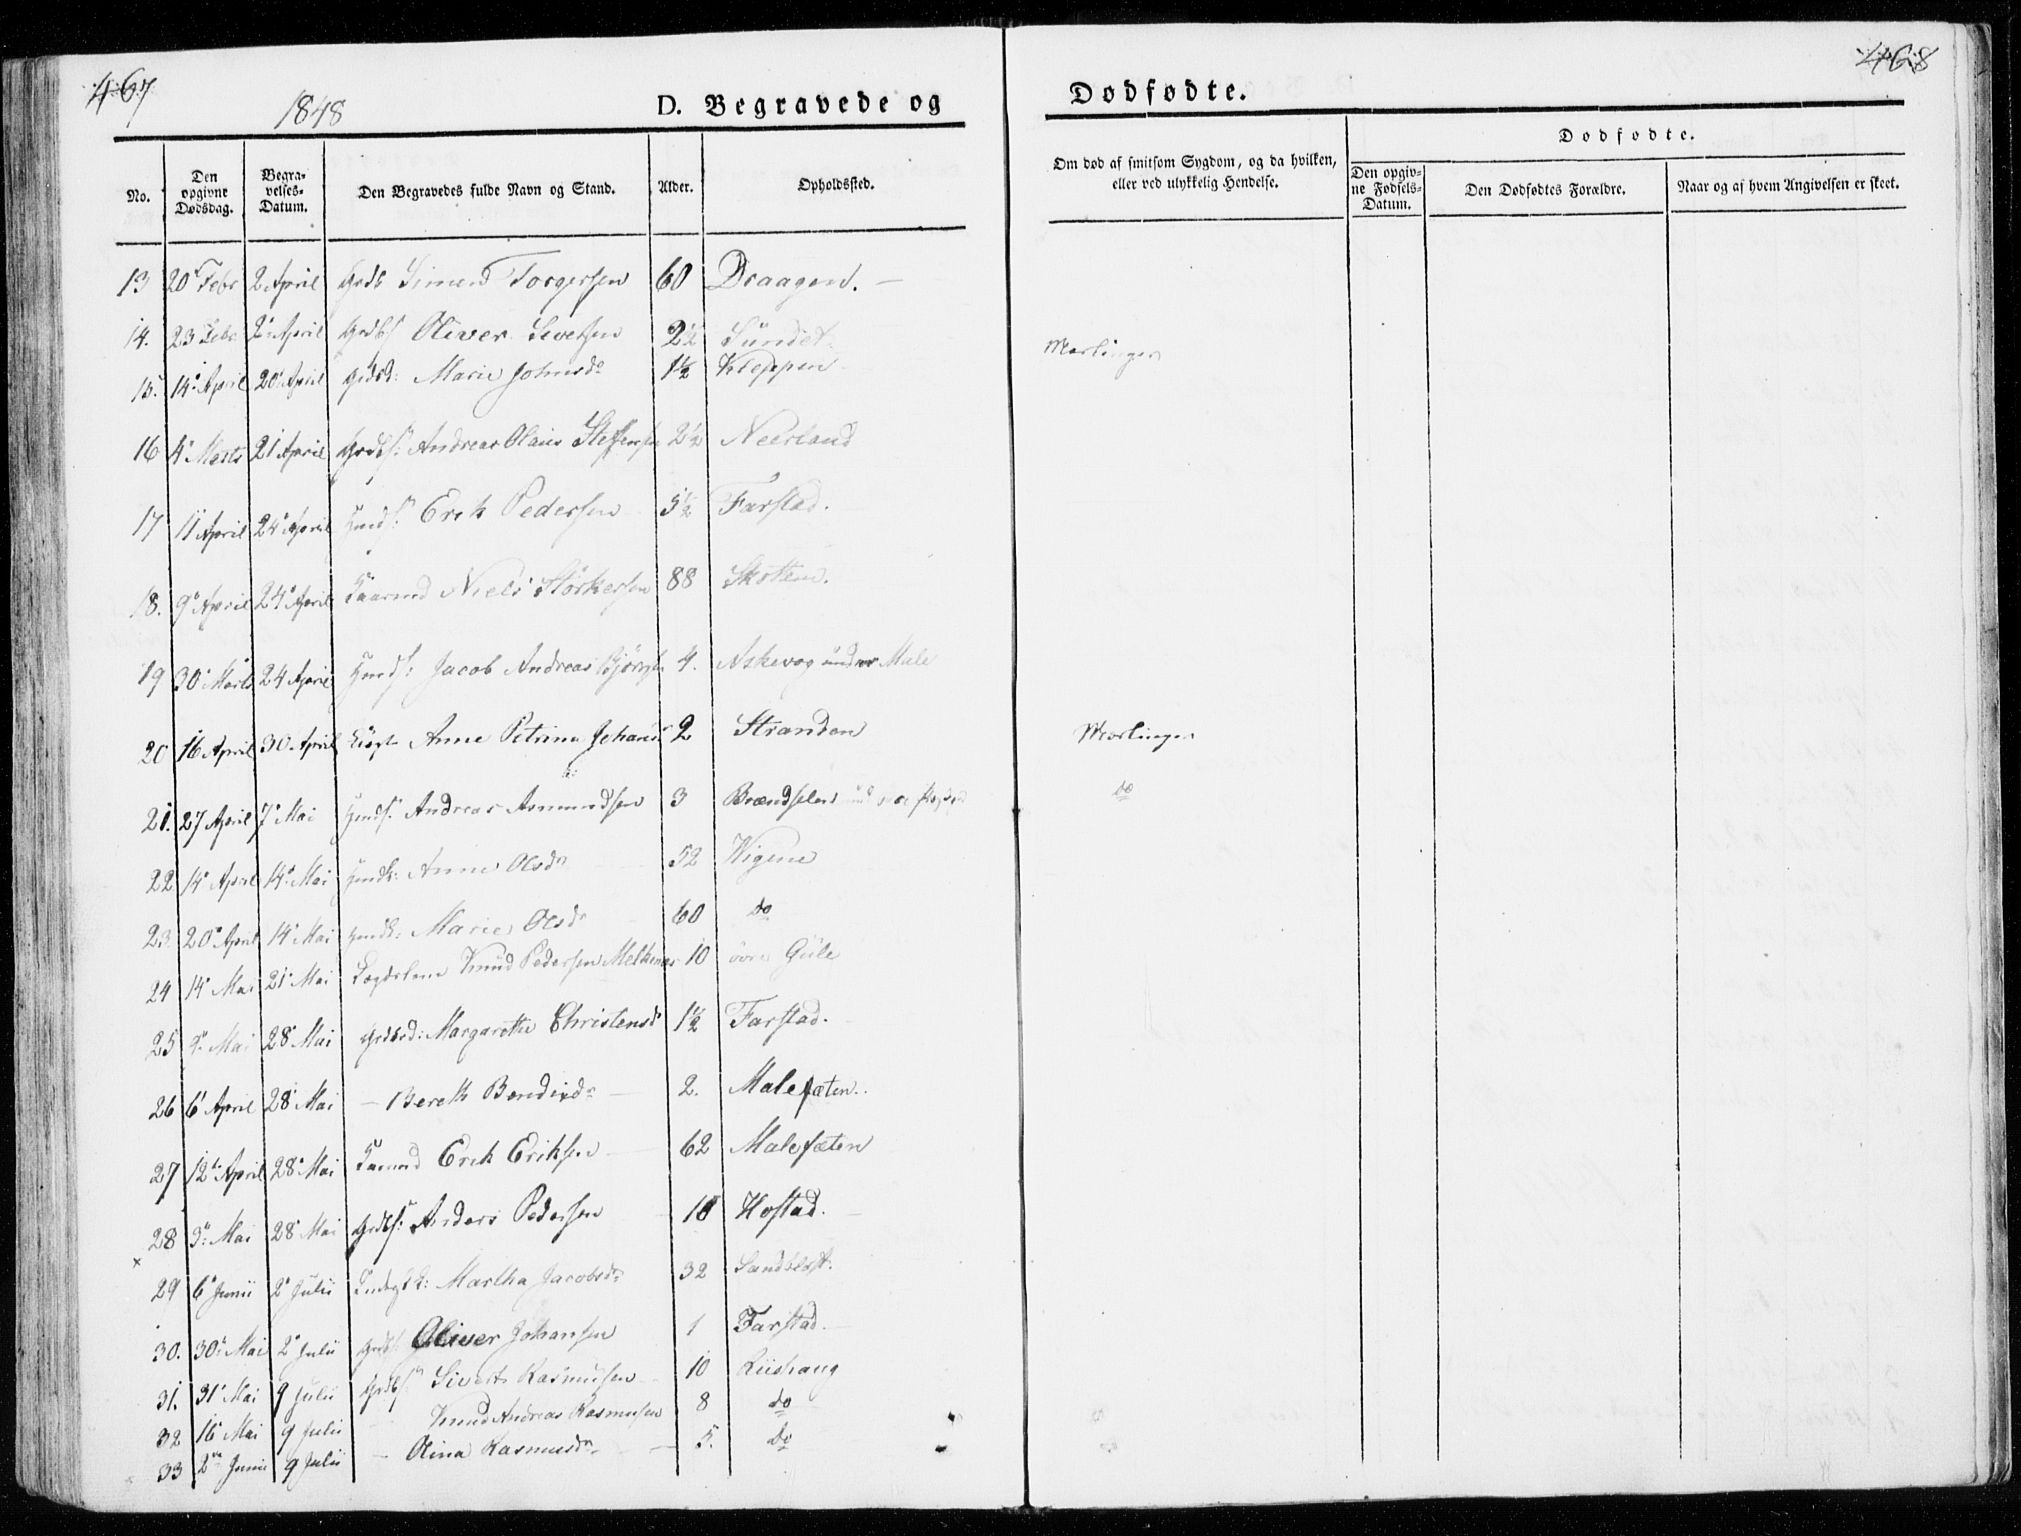 467
468
1848
D. Begravede og
Dødfødte.
No.
Den opgivne Dødsdag.
Begravelses-Datum.
Den Begravedes fulde Navn og Stand.
Alder.
Opholdssted.
Om død af smitsom Sygdom, og da hvilken, eller ved ulykkelig Hendelse.
Dødfødte.
Den opgivne Fødsels-Datum.
Den Dødfødtes Forældre.
Naar og af hvem Angivelsen er skeet.
13 20 Febr 2 April Simen Torgersen 60 Draagen.
14. 23 Febr 2 April Oliver Sivertsen 2½ Sundet Mæslinger
15. 14 April 20 April Marie Johnsdr 1½ Kleppen
16 4 Marts 21 April Andreas Olaus Steffensen 2½ Neerland
17 11 April 24 April Erik Pedersen 5½ Farstad.
18. 9 April 24 April Niels Størkersen 88 Skottem.
19 30 Marts 24 April Jacob Andreas 4. Askevog under Male
20 16 April 30 April Anne Petrina 2 Stranden Mæslinger
21. 27 April 7 Mai Andreas Asmundsen 3 do
22 14 April 14 Mai Anne Olsdr 52 Wigene
23. 20 April 14 Mai Marie Olsdr 60 do
24 14 Mai 21 Mai Lægdslem Knud Pedersen 10 øvre Gule
25 Mai 28 Mai Margarethe Christensdr 1½ Farstad.
26 6 April 28 Mai — Bereth 2. Malefæten.
27 12te April 28 Mai Erik Eriksen 62 Malefæten
28 Mai 28 Mai Anders Pedersen Hostad.
29 6 Junii 2 Julii Martha Jacobsdr 32
30. 30 Mai 2 Julii Oliver Johansen 1 Farstad.
31. 31 Mai 9 Julii Sivert Rasmusen 10 Riishaug
32 16 Mai 9 Julii Knud Andreas Rasmusen 8 do
33 2 Junii 9 Julii — Olina Rasmusdr 5. do